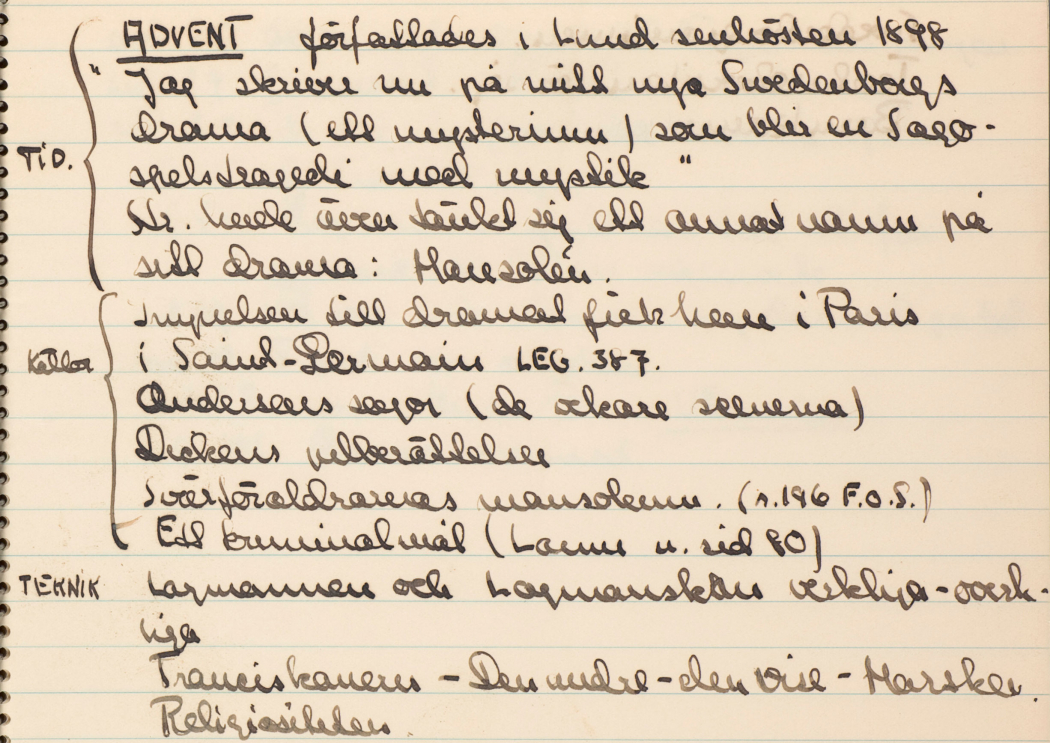 ADVENT författades i Lund senhösten 1898
TID.
"Jag skriver nu på mitt nya Swedenborgs
drama (ett mysterium) som blir en Sago-
spelstragedi med mystik"
Str. hade även tänkt sig ett annat namn på
sitt drama: Mausolén.
Källor
Impulsen till dramat fick han i Paris
i Saint-Germain LEG. 387.
Andersens sagor (de otäckare scenerna)
Dickens julberättelser
Svärföräldrarnas mausoleum. (s.196 F.O.S.)
Ett kriminalmål (Lamm u. sid 80)
TEKNIK Lagmannen och Lagmanskan verkliga-overk-
liga
Franciskanern - Den andre - den vise -
Religiositeten